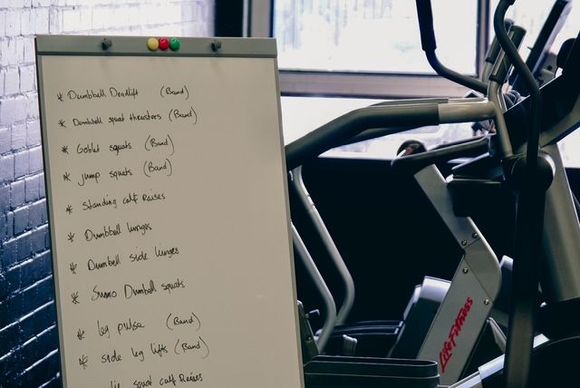 * Dumbbell Deadlift (Band)
* Dumbbell squat thrusters (Band)
* Goblet squats (Band)
* jump squats (Band)
* standing calf Raises
* Dumbbell lunges
* Dumbell side lunges
* Sumo Dumbell squats
* leg pulse (Band)
* side leg lifts (Band)
squat calf Raises
Life Fitness